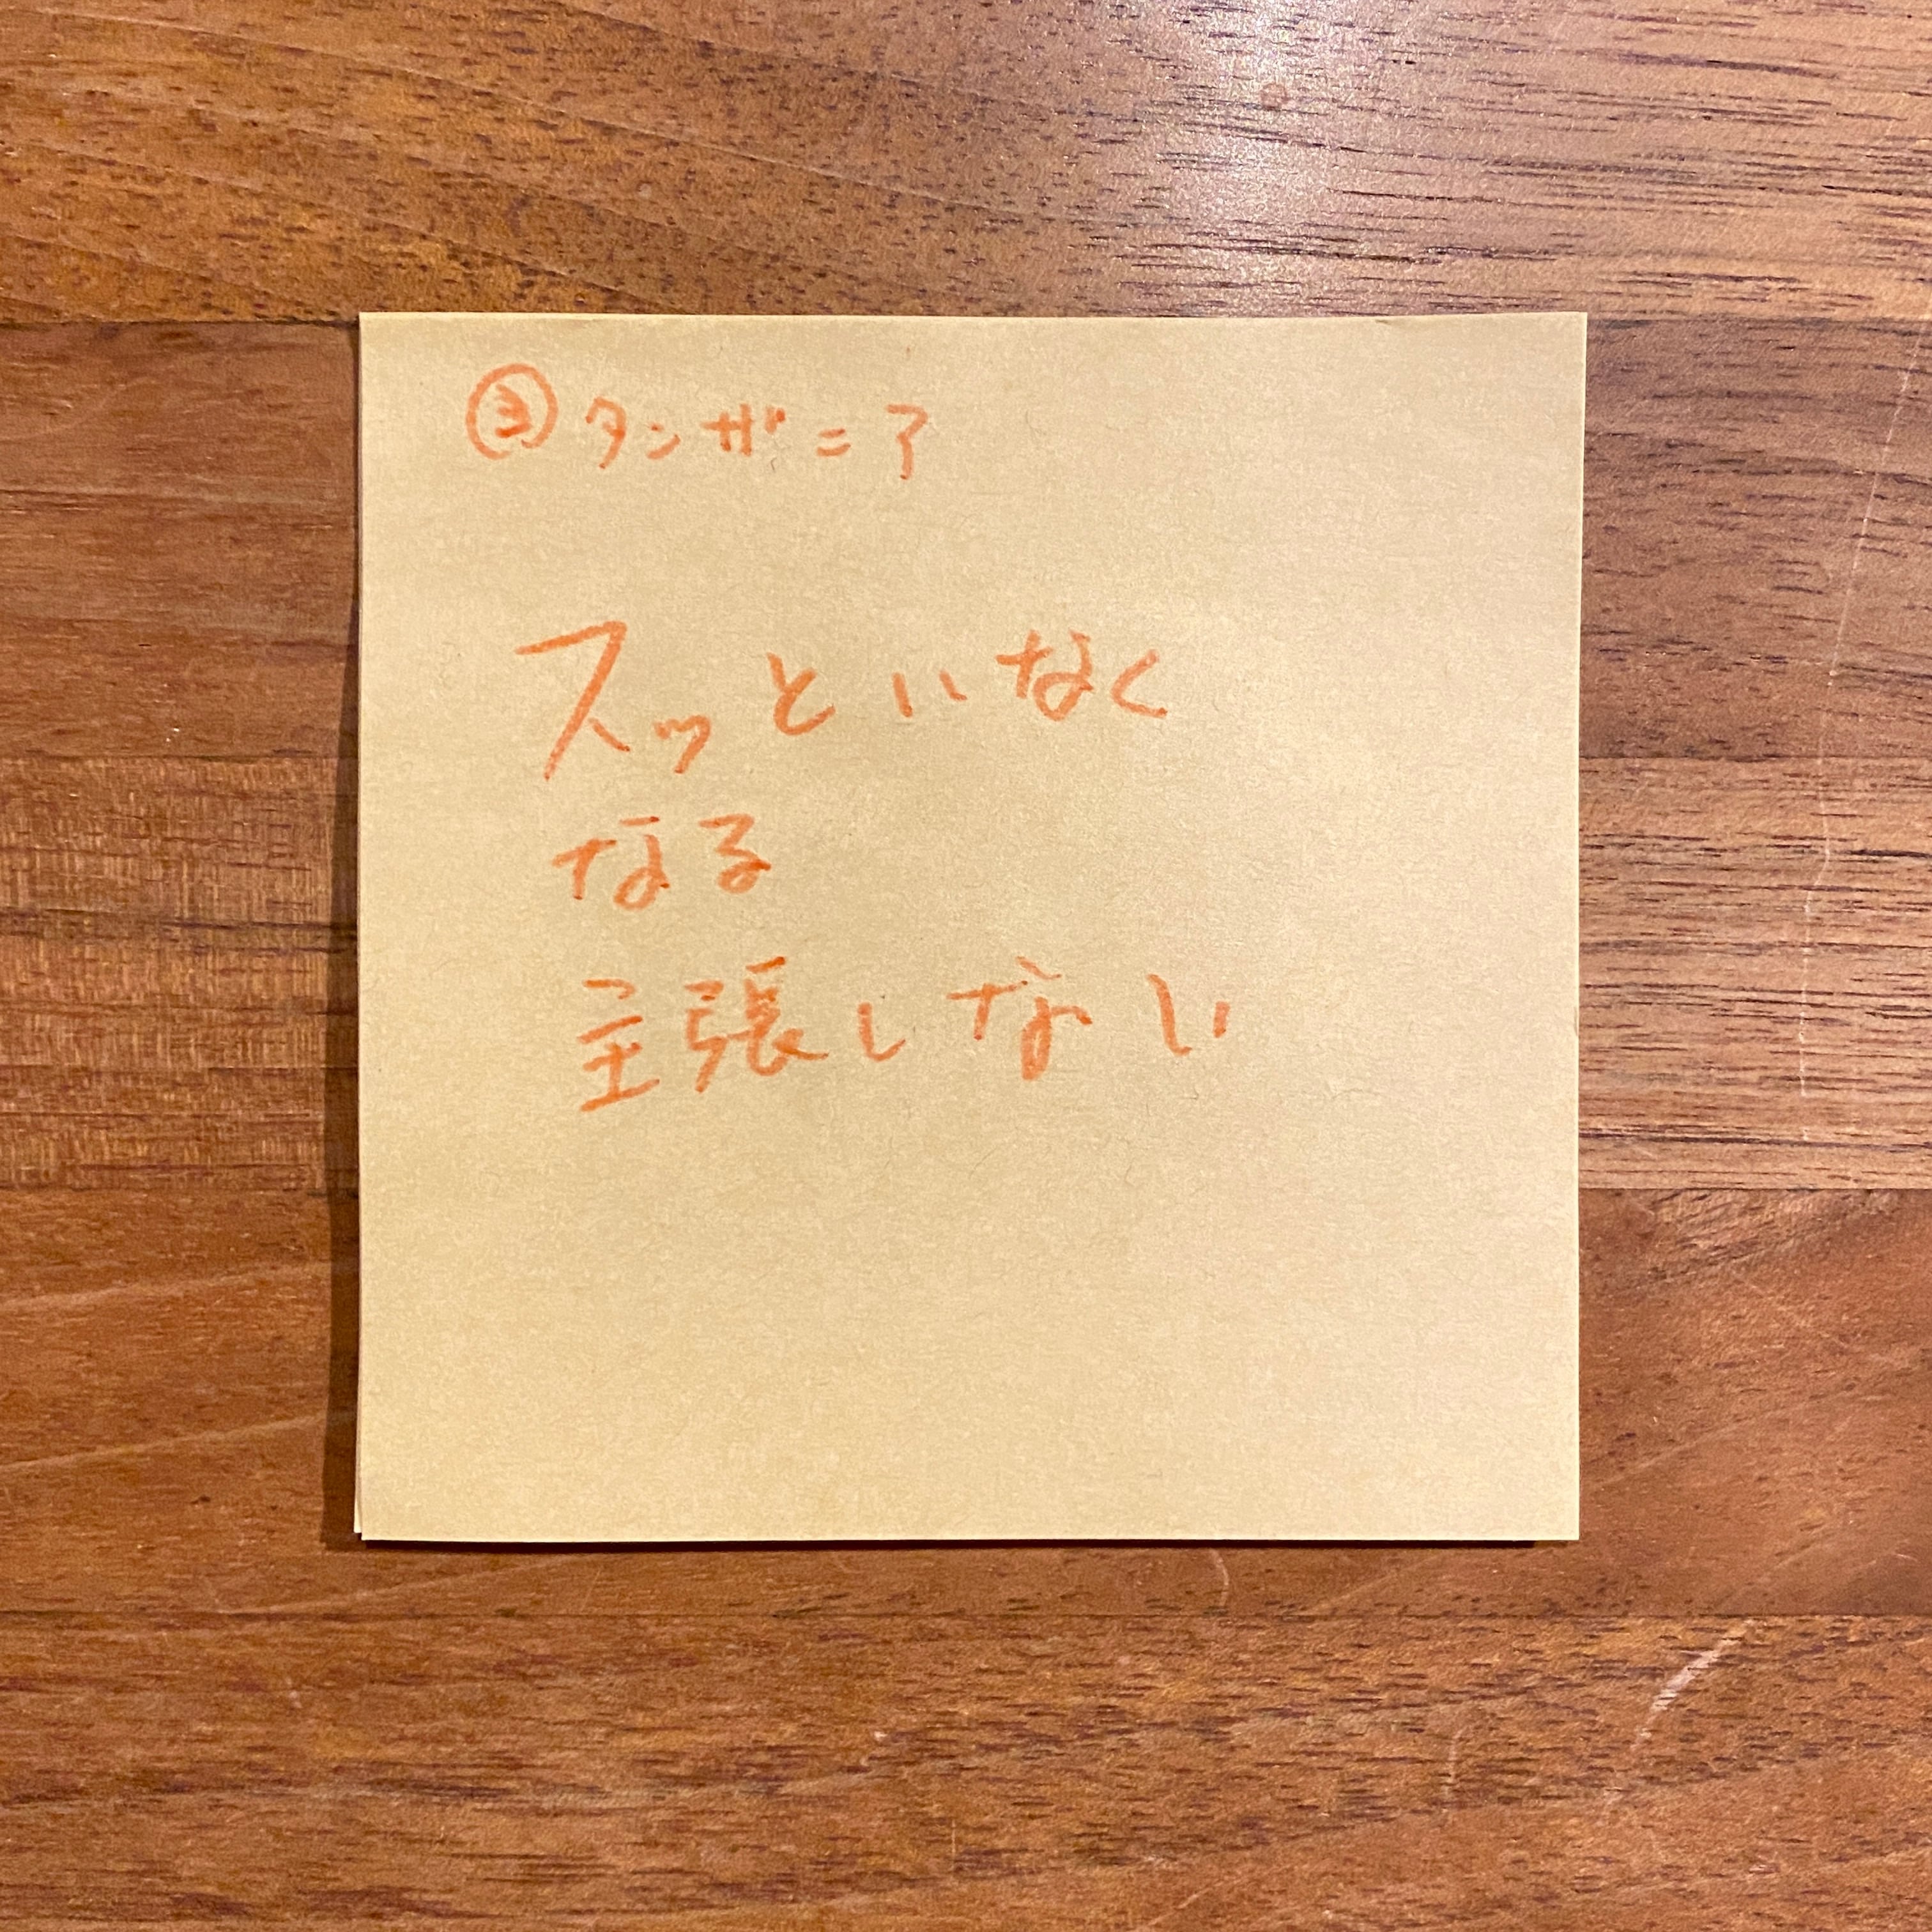 ③タンザニア
スッといなく
なる
主張しない